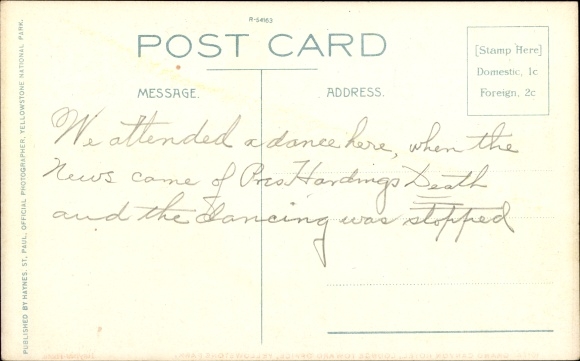 R-54163
POST CARD
[Stamp Here]
Domestic, 1c
Foreign, 2c
MESSAGE.
ADDRESS.
We attended a dance here, when the
News came of Pres Hardings Death
and the dancing was stopped
PUBLISHED BY HAYNES, ST. PAUL, OFFICIAL PHOTOGRAPHER, YELLOWSTONE NATIONAL PARK.